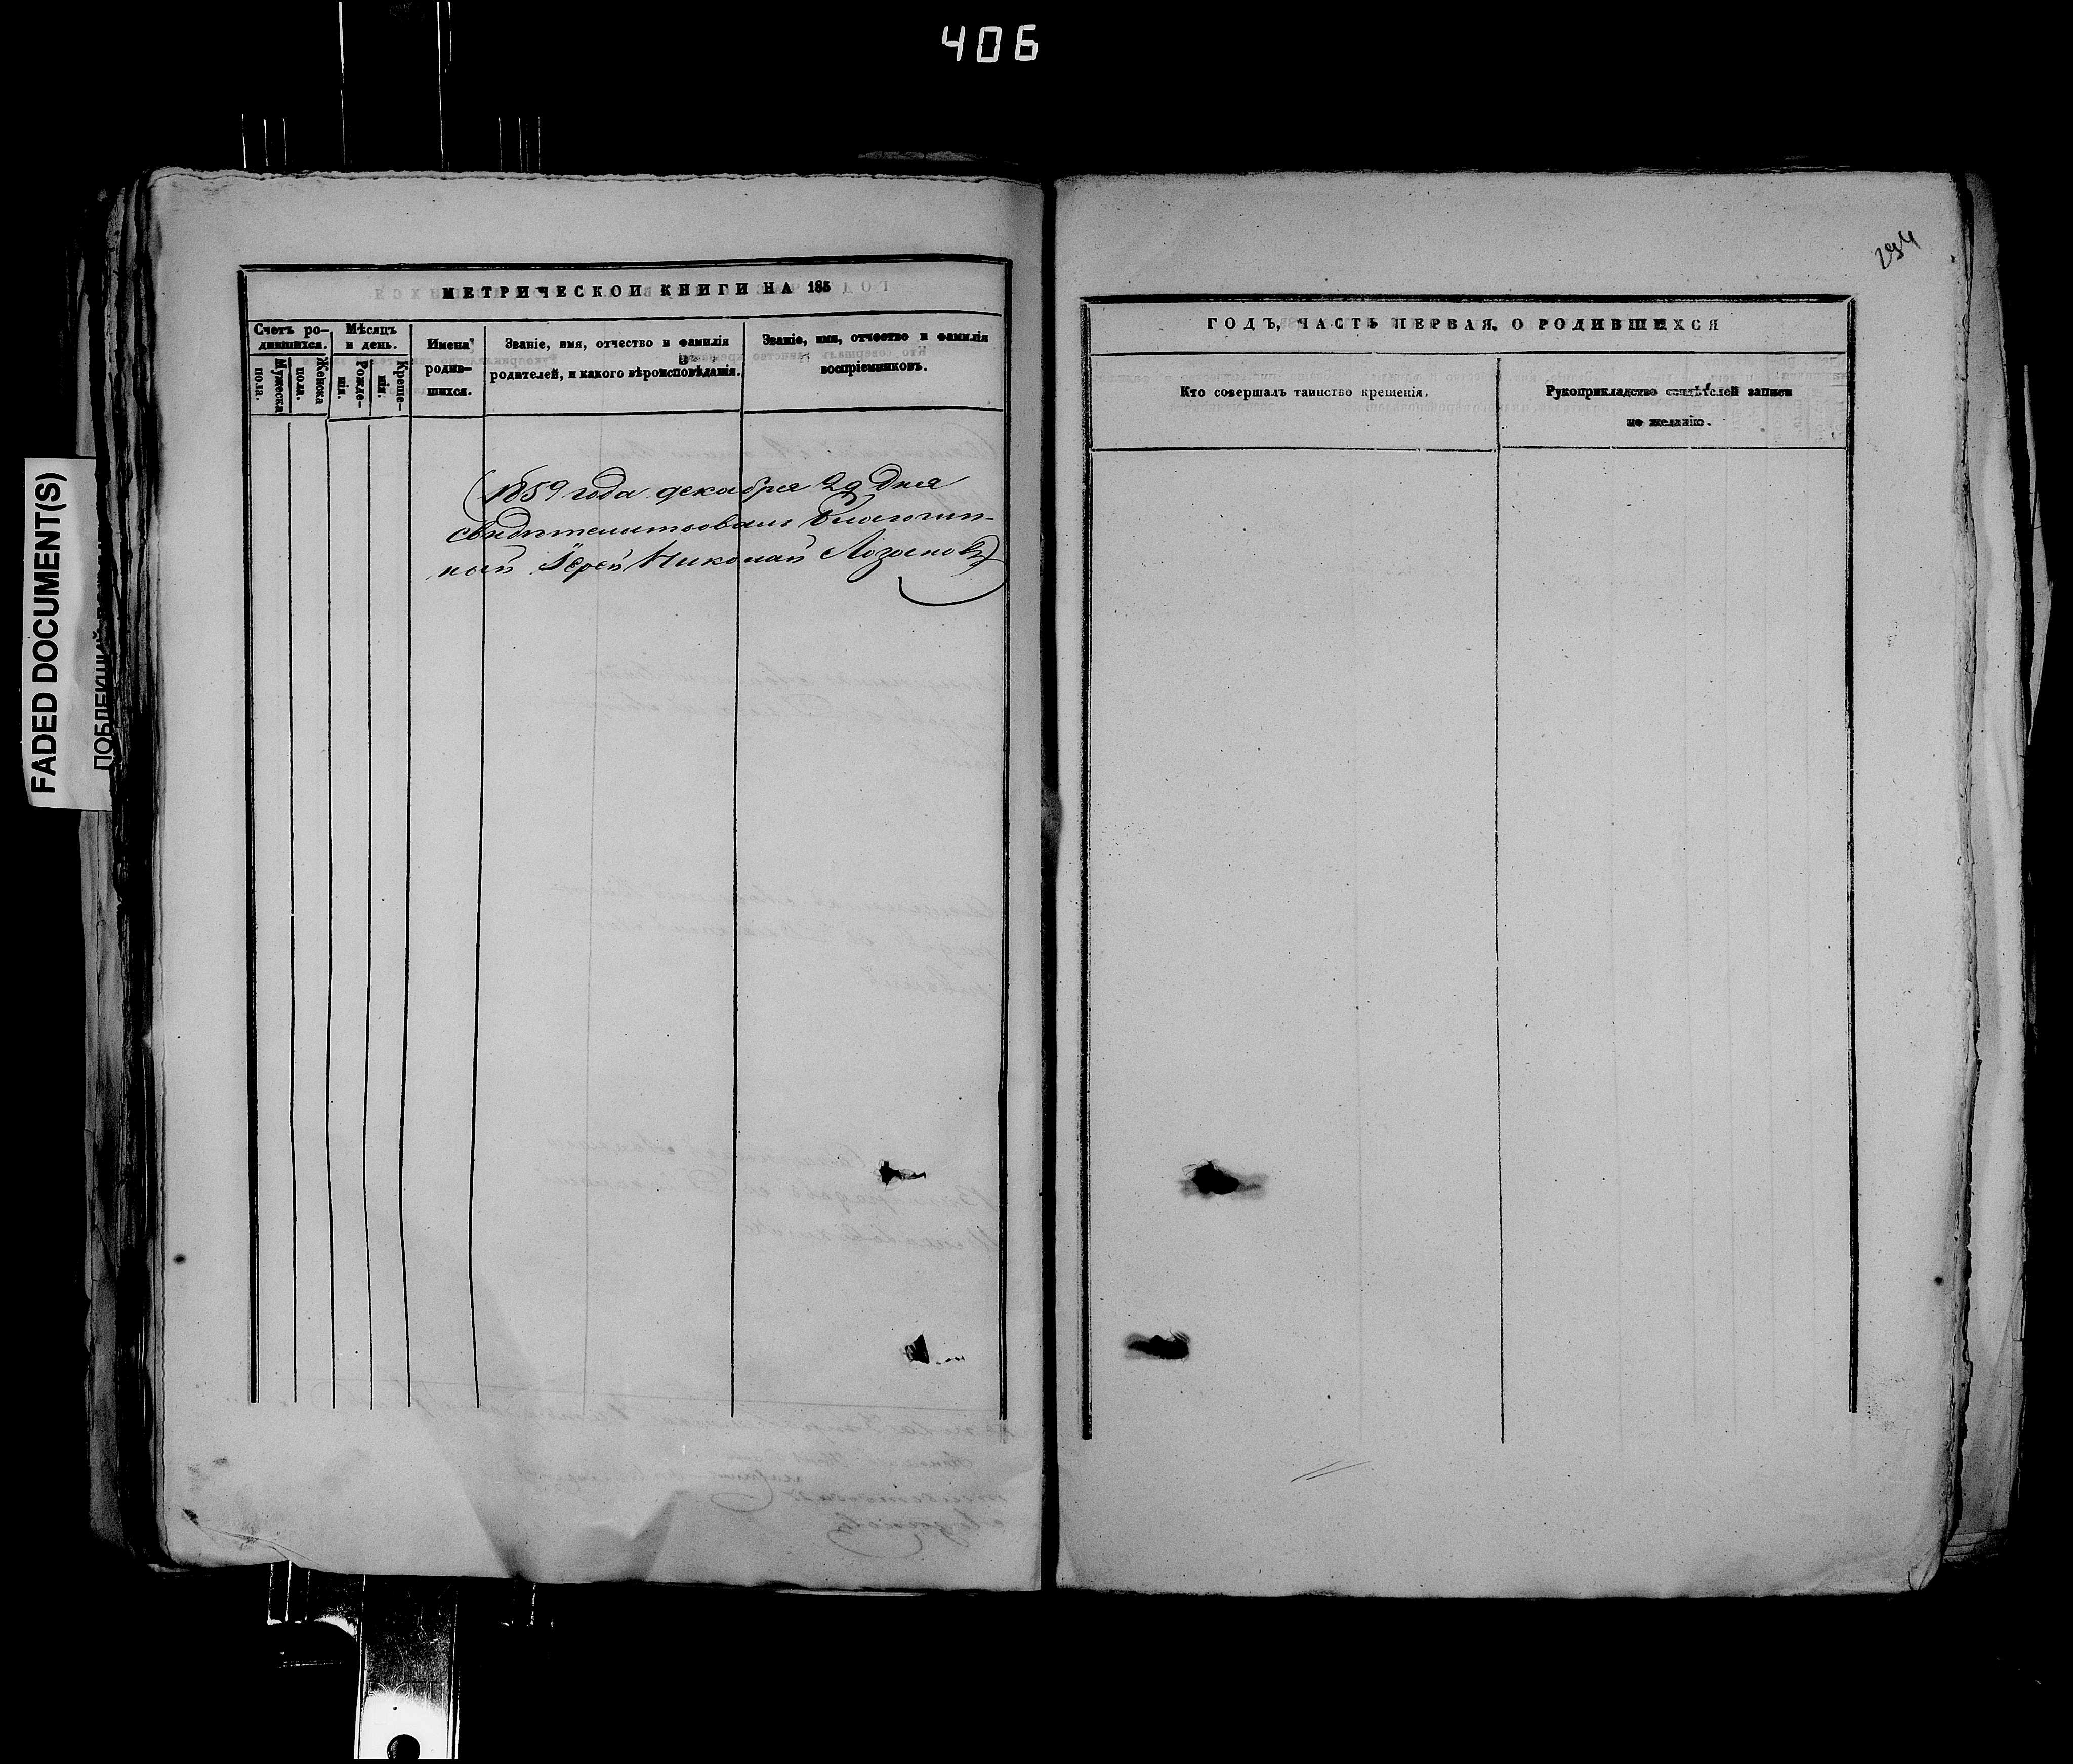 406
294
FADED DOCUMENT(S)
МЕТРИЧЕСКОЙ КНИГИ НА 185
Счетъ ро-
дившихся.
Мужеска
пола.
Женска
пола.
Мѣсяцъ
и день.
Рожде-
нія.
Креще-
нія.
Имена
родив-
шихся.
Званіе, имя, отчество и фамилія
родителей, и какого вѣроисповѣданія.
Званіе, имя, отчество и фамилія
воспріемниковъ.
1859 года декабря 29 Дня
свидѣтельствовалъ Благочин-
ный Іерей Николай Лозановъ
ГОДЪ, ЧАСТЬ ПЕРВАЯ. О РОДИВШИХСЯ
Кто совершалъ таинство крещенія.
Рукоприкладство свидѣтелей записи
по желанію.